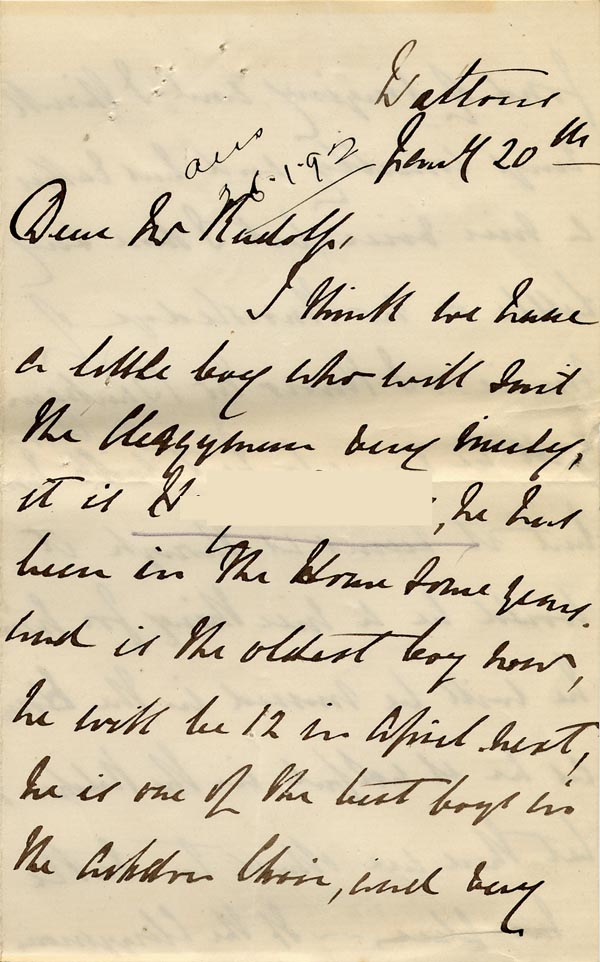 Jany 20th
ans
26.1.92
Dear Mr Rudolf,
I think we have
a little boy who will suit
the Clergyman very nicely,
it is H
, he has
been in the Home some years.
and is the oldest boy now,
he will be 12 in April next,
he is one of the best boys in
the Choir, and very